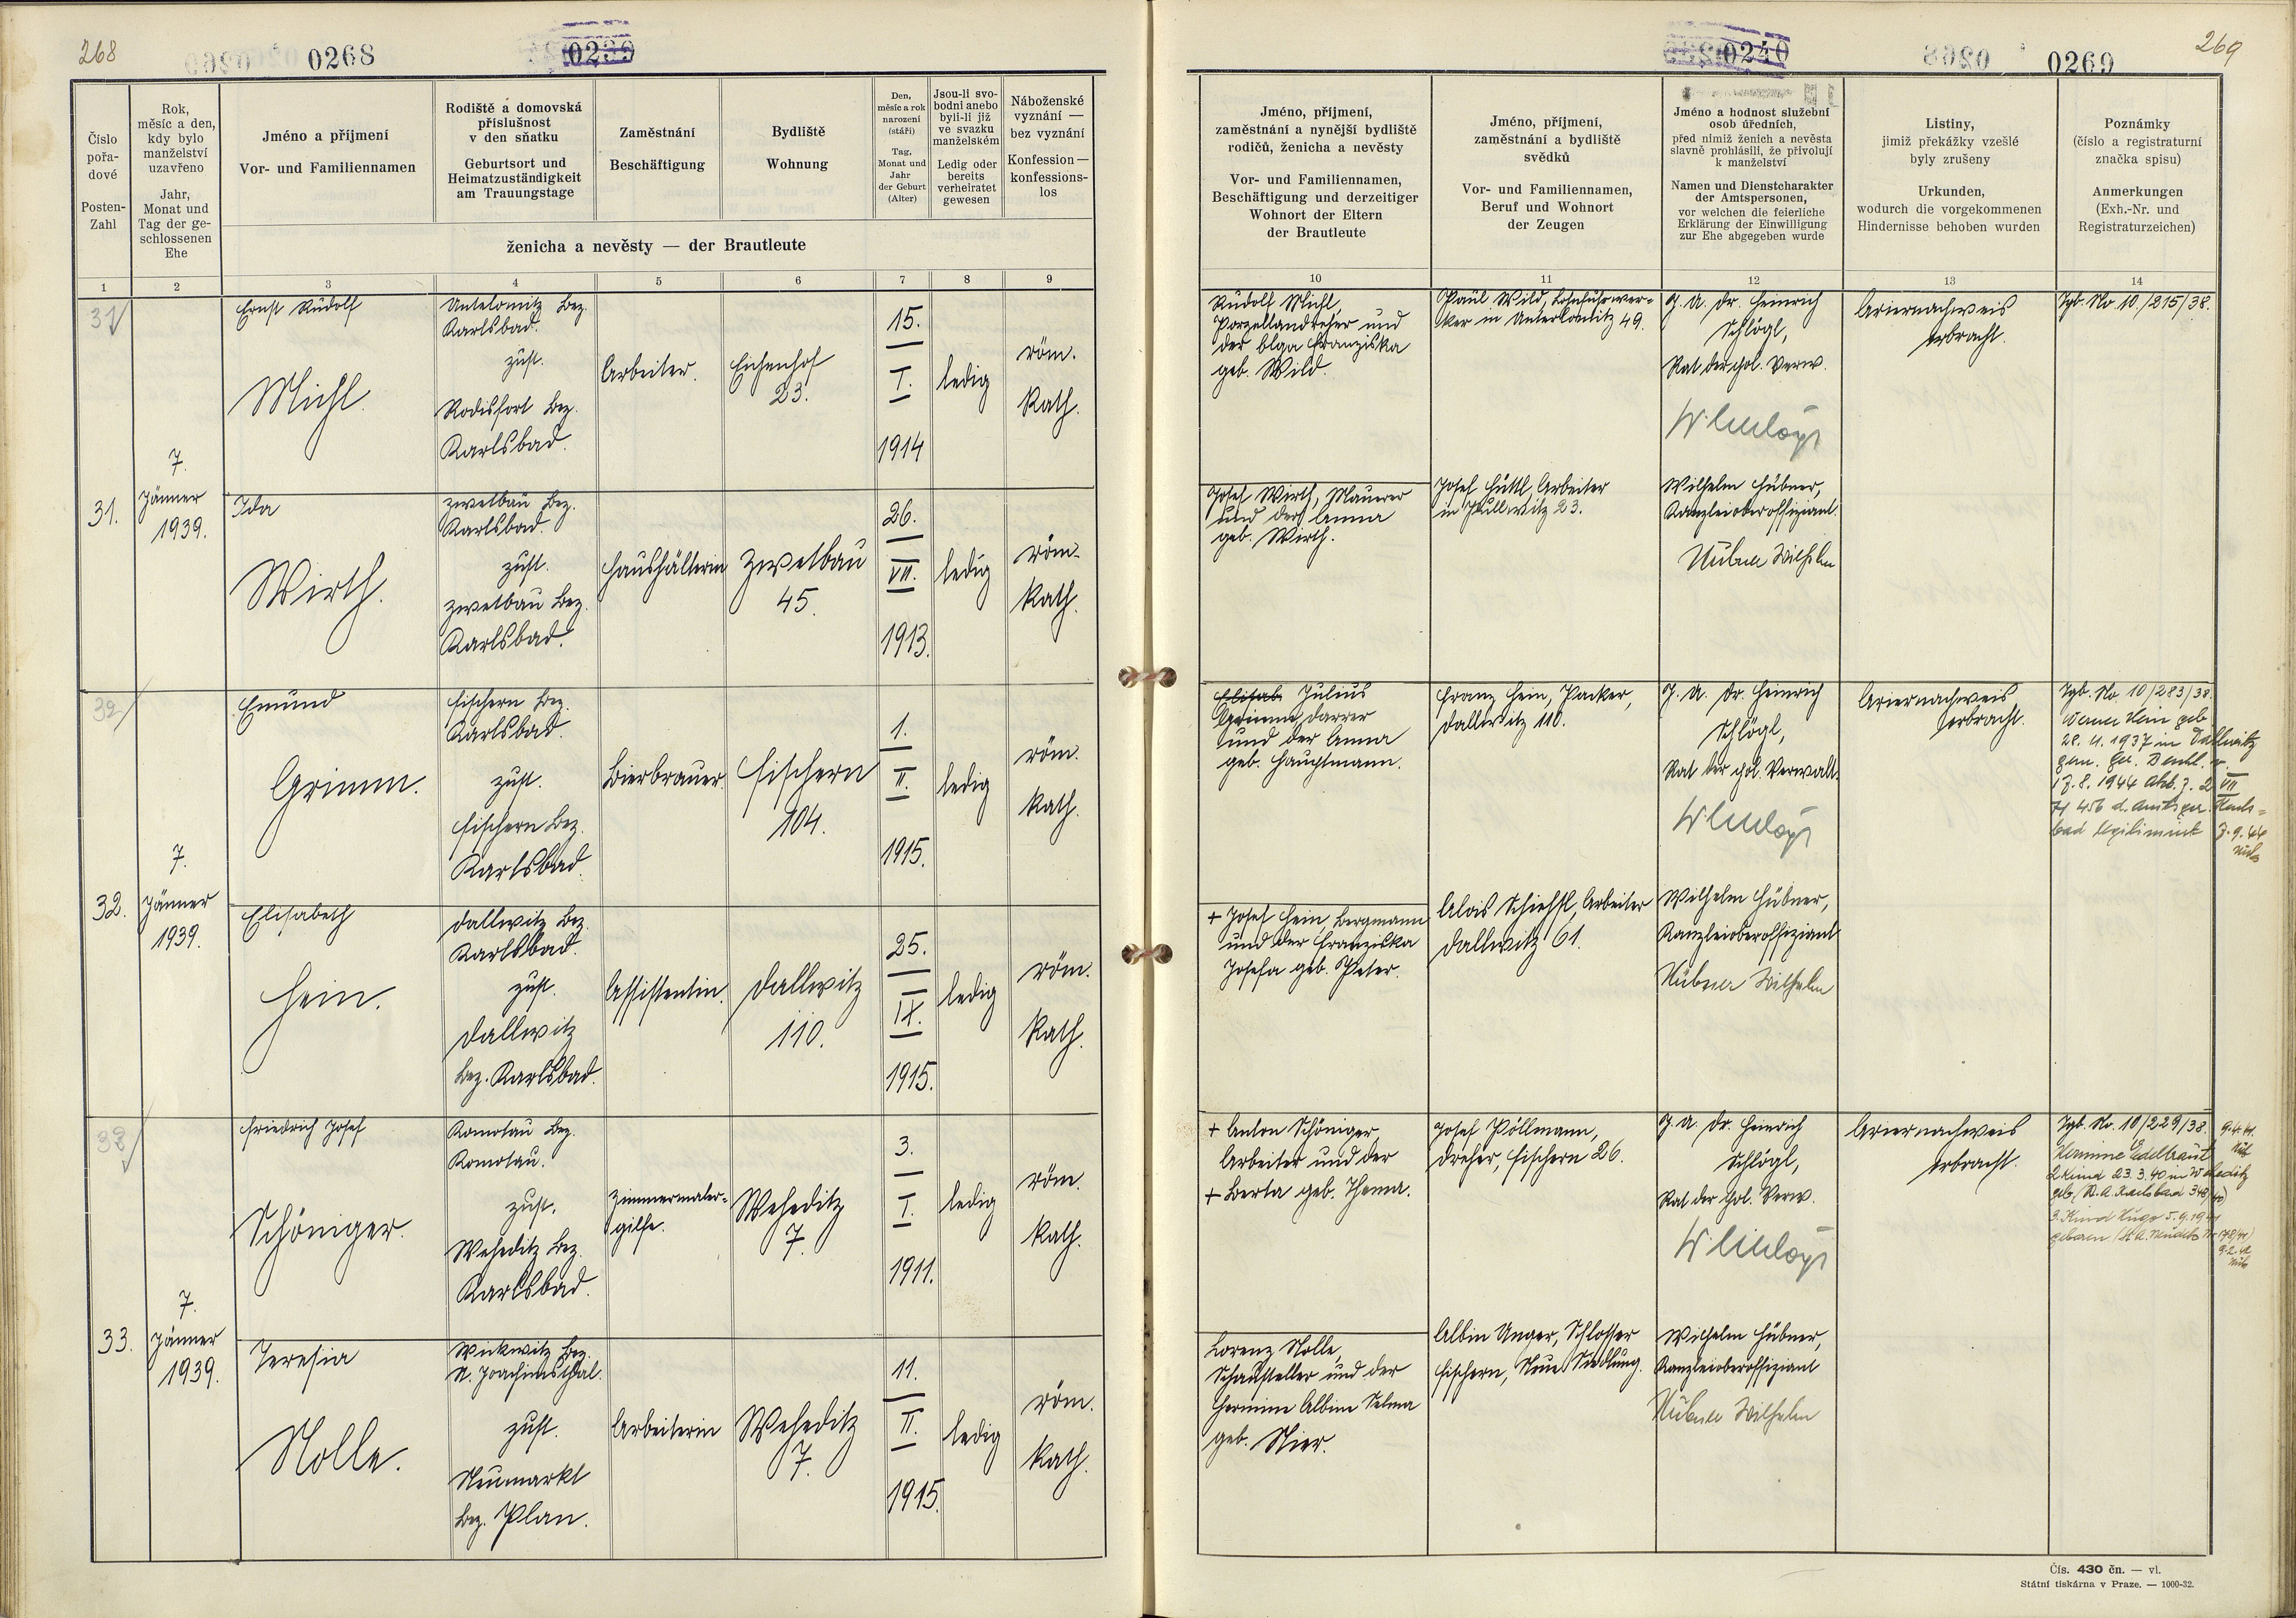 268
0268
0239
Číslo
pořa-
dové
Posten-
Zahl
Rok,
měsíc a den,
kdy bylo
manželství
uzavřeno
Jahr,
Monat und
Tag der ge-
schlossenen
Ehe
Jméno a příjmení
Vor- und Familiennamen
Rodiště a domovská
příslušnost
v den sňatku
Geburtsort und
Heimatzuständigkeit
am Trauungstage
Zaměstnání
Beschäftigung
Bydliště
Wohnung
Den,
měsíc a rok
narození
(stáří)
Tag,
Monat und
Jahr
der Geburt
(Alter)
Jsou-li svo-
bodni anebo
byli-li již
ve svazku
manželském
Ledig oder
bereits
verheiratet
gewesen
Náboženské
vyznání —
bez vyznání
Konfession —
konfessions-
los
ženicha a nevěsty — der Brautleute
1 2 3 4 5 6 7 8 9
31
31.
7.
Jänner
1939.
Ernst Rudolf
Michl.
Karlsbad.
zust.
Rodisfort Bez.
Karlsbad.
Arbeiter.
Eichenhof
23.
15.
I.
1914
ledig
röm.
kath.
Ida
Wirth.
Zwetbau Bez.
Karlsbad.
zust.
Zwetbau Bez.
Karlsbad.
Haushälterin
Zwetbau
45.
26.
VII.
1913.
ledig
röm.
kath.
32
32.
7.
Jänner
1939.
Emund
Grimm.
Fischern Bez.
Karlsbad.
zust.
Fischern Bez.
Karlsbad.
Bierbrauer.
Fischern
104.
1.
II.
1915.
ledig
röm.
kath.
Elisabeth
Hein.
Dallwitz Bez.
Karlsbad.
zust.
Dallwitz
Bez. Karlsbad.
Assistentin.
Dallwitz
110.
25.
IX.
1915.
ledig
röm.
kath.
33
33.
7.
Jänner
1939.
Friedrich Josef
Schöniger.
Komotau Bez.
Komotau.
zust.
Weheditz Bez.
Karlsbad.
Zimmermaler-
gilfe.
Weheditz
7.
3.
I.
1911.
ledig
röm.
kath.
Teresia
Nolle.
Wickwitz Bez.
St. Joachimsthal.
zust.
Neumarkt
Bez. Plan.
Arbeiterin
Weheditz
7.
11.
II.
1915.
ledig
röm.
kath.
0240
0269
269
Jméno, příjmení,
zaměstnání a nynější bydliště
rodičů, ženicha a nevěsty
Vor- und Familiennamen,
Beschäftigung und derzeitiger
Wohnort der Eltern
der Brautleute
Jméno, příjmení,
zaměstnání a bydliště
svědků
Vor- und Familiennamen,
Beruf und Wohnort
der Zeugen
Jméno a hodnost služební
osob úředních,
před nimiž ženich a nevěsta
slavně prohlásili, že přivolují
k manželství
Namen und Dienstcharakter
der Amtspersonen,
vor welchen die feierliche
Erklärung der Einwilligung
zur Ehe abgegeben wurde
Listiny,
jimiž překážky vzešlé
byly zrušeny
Urkunden,
wodurch die vorgekommenen
Hindernisse behoben wurden
Poznámky
(číslo a registraturní
značka spisu)
Anmerkungen
(Exh.-Nr. und
Registraturzeichen)
10 11 12 13 14
Rudolf Michl,
Porzellandreher und
der Franziska
geb. Wild.
Paul Wild, Lohnfuhrwer-
ker in Unterlomitz 49.
J. A. Dr. Heinrich
Schlögl,
Rat der pol. Verw.
Ariernachweis
erbracht.
Tgb. No 10/215/38.
Josef Wirth, Maurer
und der Anna
geb. Wirth.
Josef Hüttl, Arbeiter
in Pullwitz 23.
Wilhelm Hübner,
Kanzleioberoffiziant.
Hübner Wilhelm
Elisab. Julius
Grimm, Darrer
und der Anna
geb. Hauptmann.
Franz Hein, Packer,
Dallwitz 110.
J. A. Dr. Heinrich
Schlögl,
Rat der pol. Verwalt.
Ariernachweis
erbracht.
Tgb. No. 10/283/38.
Werner Hein geb.
28. 4. 1937 in Dallwitz
17. 8. 1944 Akt. z. 2 VII
456 d. Amtsger. Karls-
bad legitimiert 7. 9. 44
+ Josef Hein, Bergmann
und der Franziska
Josefa geb. Peter.
Alois Schiessl, Arbeiter
Dallwitz 61.
Wilhelm Hübner,
Kanzleioberoffiziant
Hübner Wilhelm
+ Anton Schöniger
Arbeiter und der
+ Berta geb. Thema.
Josef Pöllmann,
Dreher, Fischern 26.
J. A. Dr. Heinrich
Schlögl,
Rat der pol. Verw.
Ariernachweis
erbracht.
Tgb. No. 10/229/38
Hermine Edeltraut
2. Kind 23. 3. 40 in Weheditz
geb. (St. A. Karlsbad 348/40)
3. Kind Hugo 5. 9. 1941
geboren
Lorenz Nolle,
Schausteller und der
Hermine Albine Selma
geb. Nier.
Albin Unger, Schlosser
Fischern, Neue Siedlung.
Wilhelm Hübner,
Kanzleioberoffiziant
Hübner Wilhelm
Čís. 430 čn. — vl.
Státní tiskárna v Praze. — 1000-32.